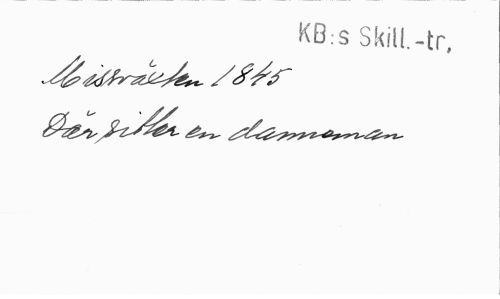 KB:s Skill.-tr.
Missväxten 1845
Där sitter en danneman